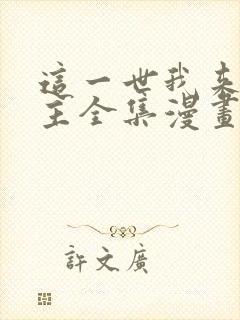 這一世我來
主全集漫畫
許文廣